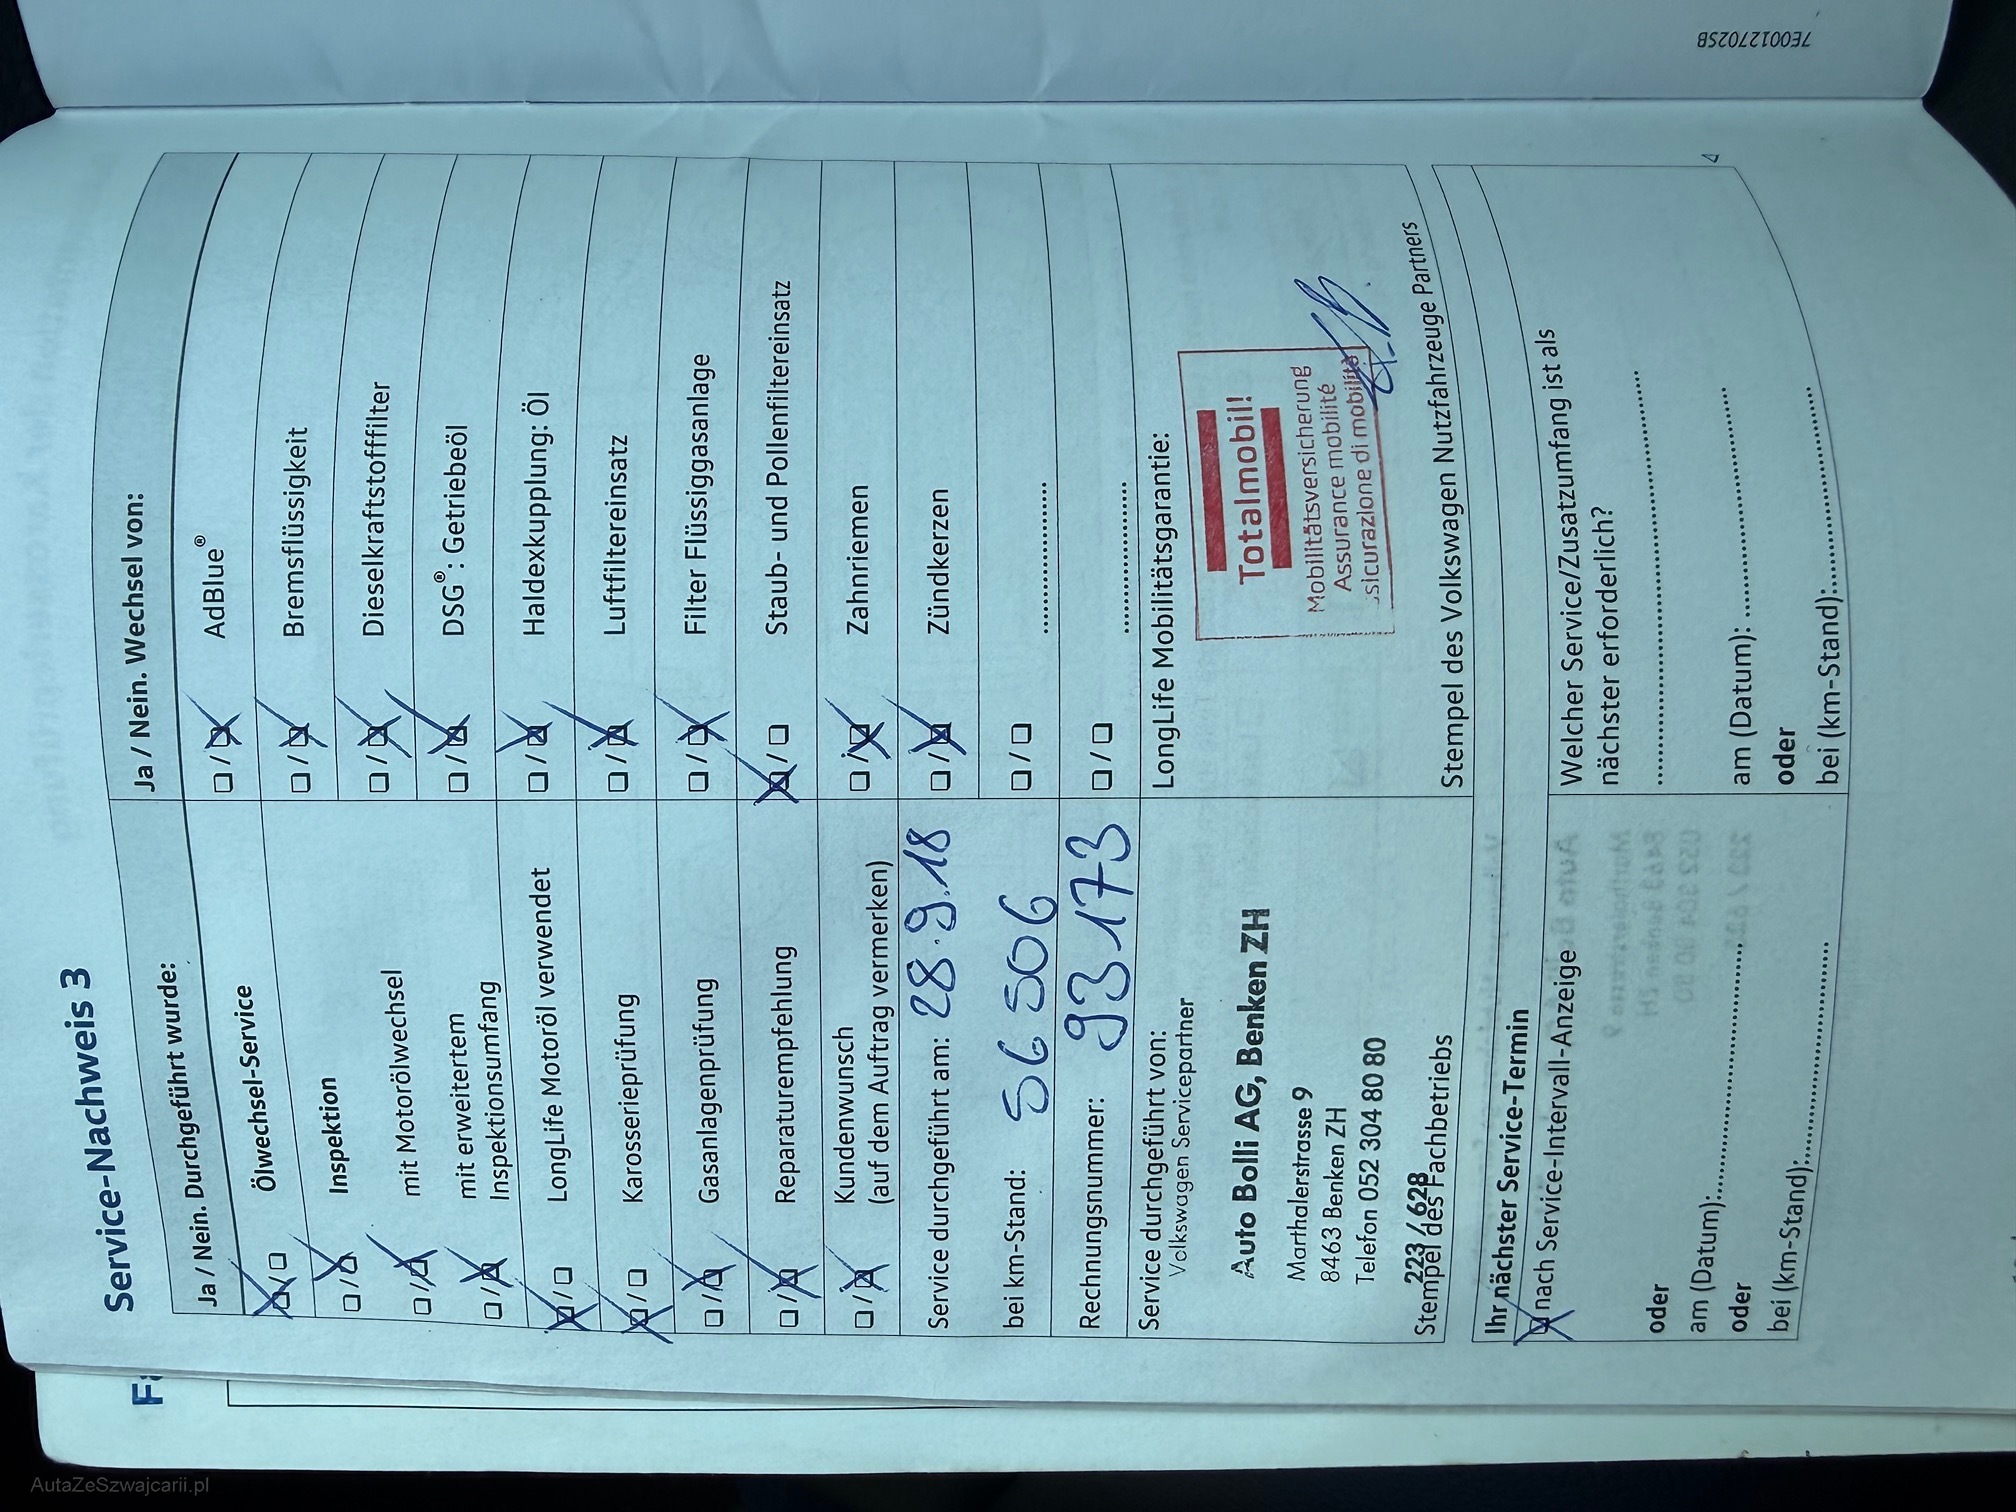 7E0012702SB
Service-Nachweis 3
Ja / Nein. Durchgeführt wurde:
☒/☐ Ölwechsel-Service
☐/☒ Inspektion
☐/☒ mit Motorölwechsel
☐/☒ mit erweitertem
Inspektionsumfang
☒/☐ LongLife Motoröl verwendet
☒/☐ Karosserieprüfung
☐/☒ Gasanlagenprüfung
☐/☒ Reparaturempfehlung
☐/☒ Kundenwunsch
(auf dem Auftrag vermerken)
Service durchgeführt am: 28.9.18
bei km-Stand: 56 506
Rechnungsnummer: 93173
Service durchgeführt von:
Volkswagen Servicepartner
Auto Bolli AG, Benken ZH
Marthalerstrasse 9
8463 Benken ZH
Telefon 052 304 80 80
223 / 628
Stempel des Fachbetriebs
Ja / Nein. Wechsel von:
☐/☒ AdBlue®
☐/☒ Bremsflüssigkeit
☐/☒ Dieselkraftstofffilter
☐/☒ DSG®: Getriebeöl
☐/☒ Haldexkupplung: Öl
☐/☒ Luftfiltereinsatz
☐/☒ Filter Flüssiggasanlage
☒/☐ Staub- und Pollenfiltereinsatz
☐/☒ Zahnriemen
☐/☒ Zündkerzen
☐/☐ ....................
☐/☐ ....................
LongLife Mobilitätsgarantie:
Totalmobil!
Mobilitätsversicherung
Assurance mobilité
sicurazione di mobilità
Stempel des Volkswagen Nutzfahrzeuge Partners
Ihr nächster Service-Termin
☒ nach Service-Intervall-Anzeige
oder
am (Datum):....................
oder
bei (km-Stand):....................
Welcher Service/Zusatzumfang ist als
nächster erforderlich?
....................
am (Datum): ....................
oder
bei (km-Stand):....................
AutaZeSzwajcarii.pl